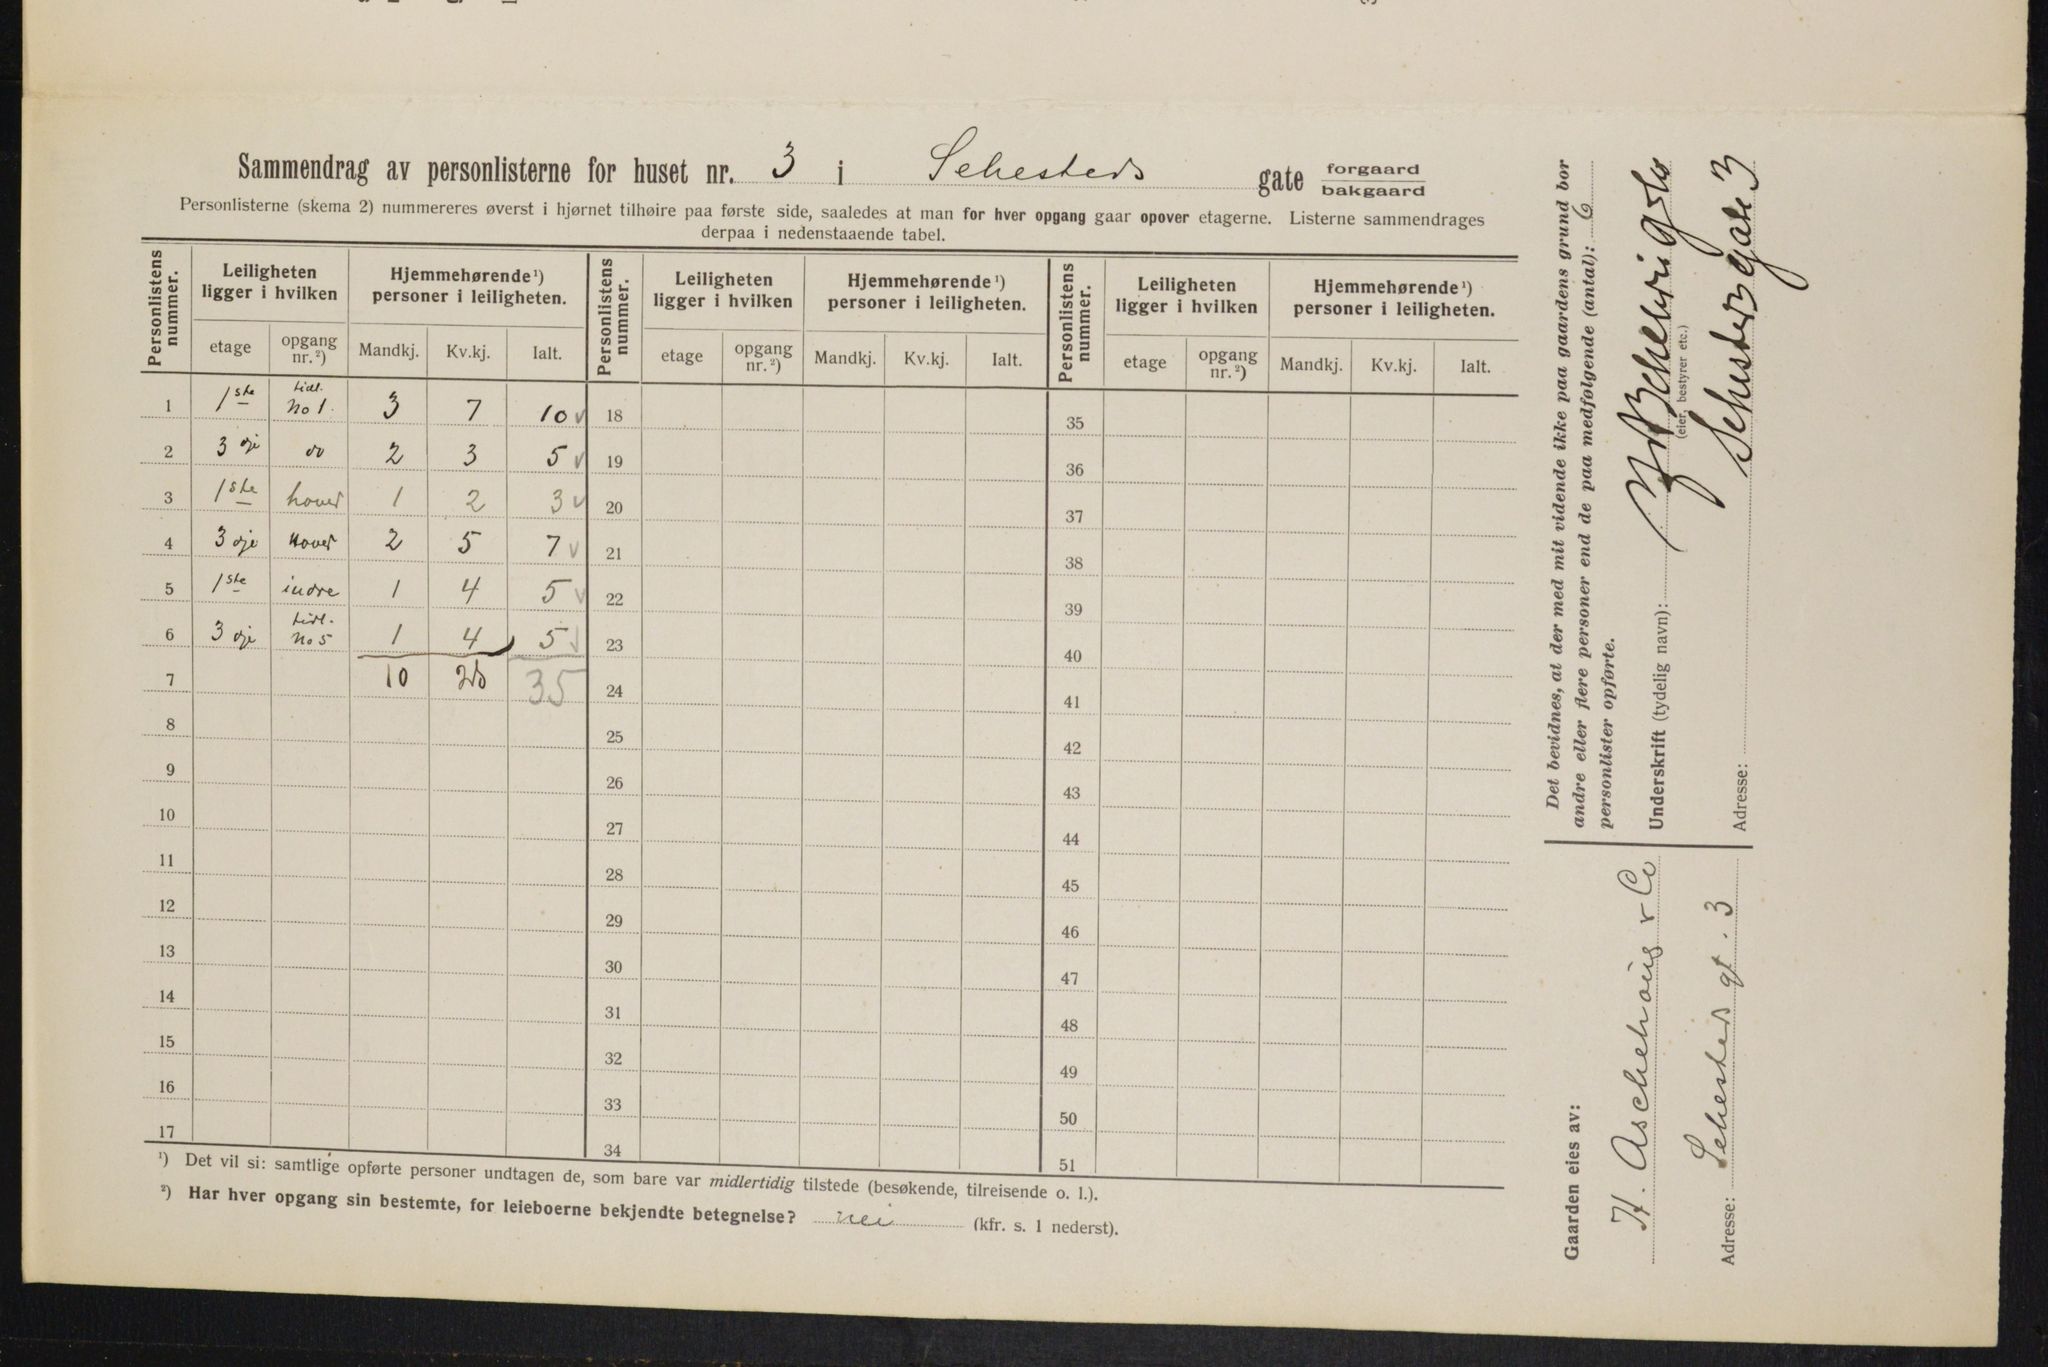 Sammendrag av personlisterne for huset nr. 3 i Sehesteds gate forgaard bakgaard
Personlisterne (skema 2) nummereres øverst i hjørnet tilhøire paa første side, saaledes at man for hver opgang gaar opover etagerne. Listerne sammendrages
derpaa i nedenstaaende tabel.
Personlistens nummer. Leiligheten ligger i hvilken Hjemmehørende¹) personer i leiligheten. Personlistens nummer. Leiligheten ligger i hvilken Hjemmehørende¹) personer i leiligheten. Personlistens nummer. Leiligheten ligger i hvilken Hjemmehørende¹) personer i leiligheten.
etage opgang nr.²) Mandkj. Kv.kj. Ialt. etage opgang nr.²) Mandkj. Kv.kj. Ialt. etage opgang nr.²) Mandkj. Kv.kj. Ialt.
1 1ste tidl. No 1. 3 7 10 18 35
2 3dje do 2 3 5 19 36
3 1ste hoved 1 2 3 20 37
4 3dje hoved 2 5 7 21 38
5 1ste indre 1 4 5 22 39
6 3dje tidl. No 5 1 4 5 23 40
7 10 25 35 24 41
8 25 42
9 26 43
10 27 44
11 28 45
12 29 46
13 30 47
14 31 48
15 32 49
16 33 50
17 34 51
¹) Det vil si: samtlige opførte personer undtagen de, som bare var midlertidig tilstede (besøkende, tilreisende o. l.).
²) Har hver opgang sin bestemte, for leieboerne bekjendte betegnelse? nei (kfr. s. 1 nederst).
Det bevidnes, at der med mit vidende ikke paa gaardens grund bor
andre eller flere personer end de paa medfølgende (antal): 6
personlister opførte.
Underskrift (tydelig navn):
(eier, bestyrer etc.)
Adresse: Sehesteds Gade 3
Gaarden eies av:
H. Aschehoug & Co
Adresse: Sehesteds gt. 3